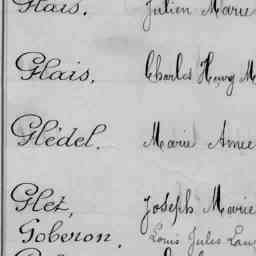 Glais. Julien Marie
Glais. Charles Henry M
Glédel. Marie Ance
Glet, Joseph Marie
Goberon. Louis Jules